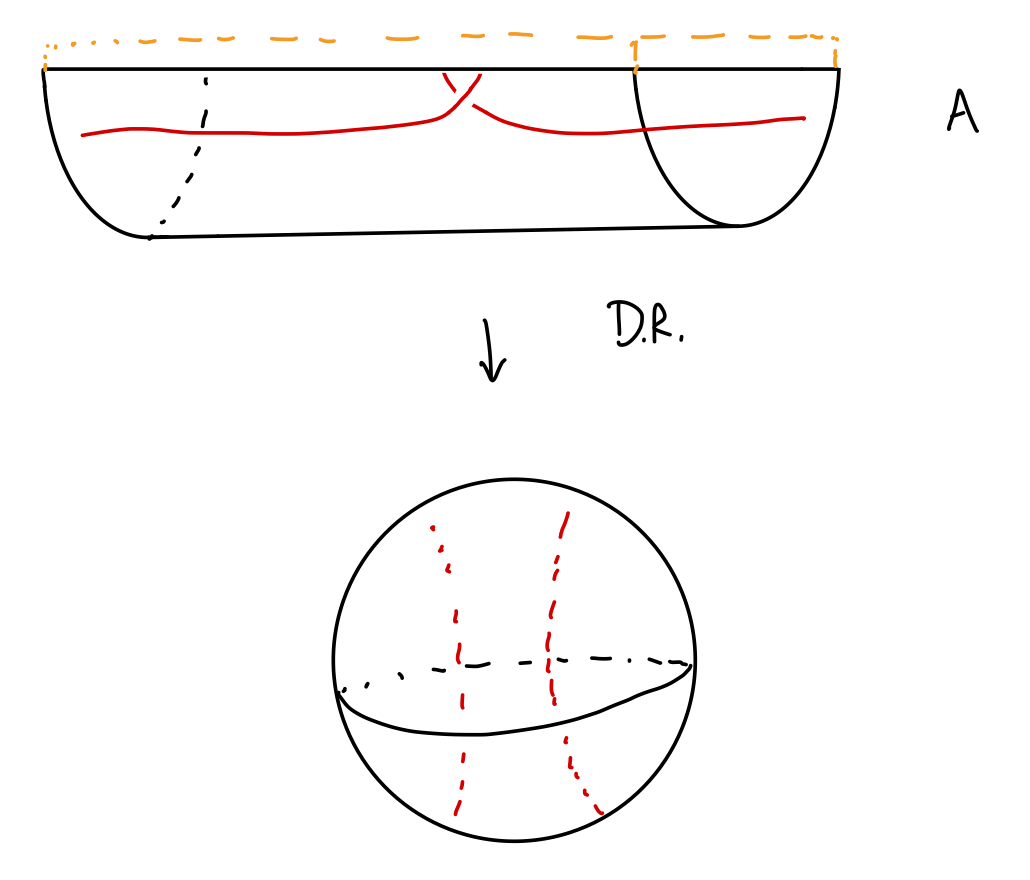 A
D.R.